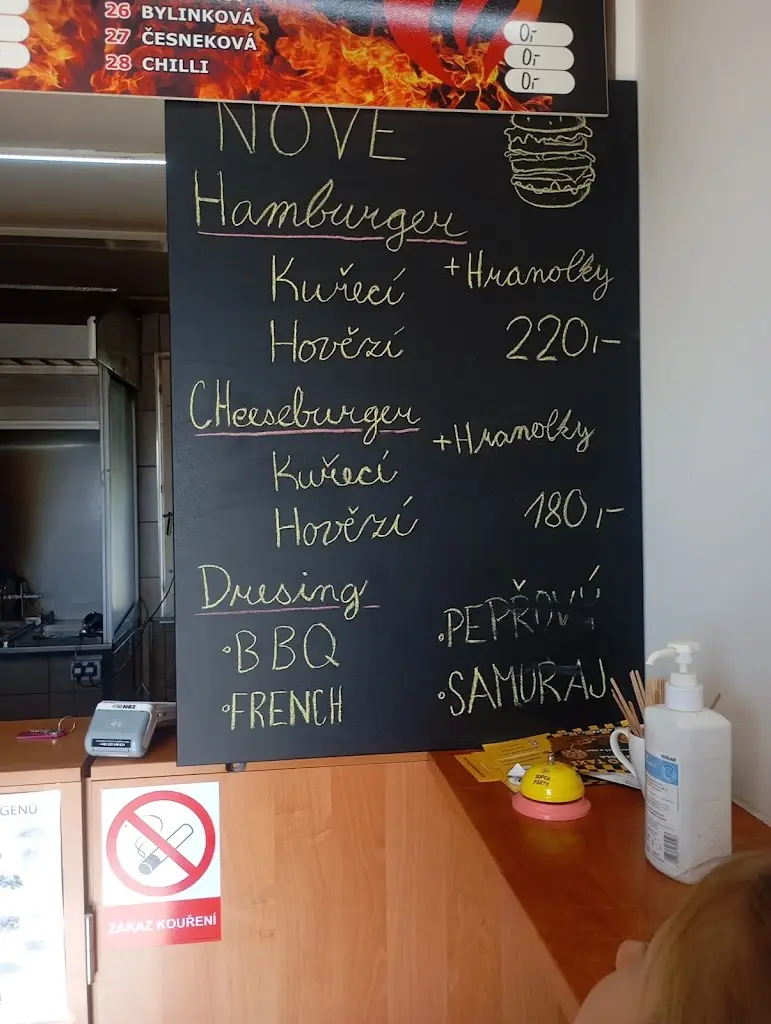 26 BYLINKOVÁ 0,-
27 ČESNEKOVÁ 0,-
28 CHILLI 0,-
NOVÉ
Hamburger
Kuřecí + Hranolky
Hovězí 220,-
CHeeseburger
+ Hranolky
Kuřecí
Hovězí 180,-
Dresing
•BBQ •PEPŘOVÝ
•FRENCH •SAMURAJ
SUPER
PÁRTY
ZÁKAZ KOUŘENÍ